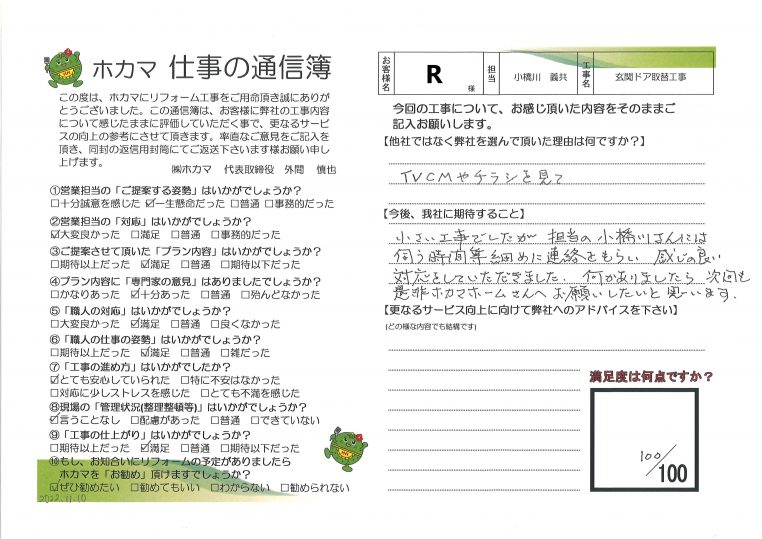 ホカマ 仕事の通信簿
この度は、ホカマにリフォーム工事をご用命頂き誠にありが
とうございました。この通信簿は、お客様に弊社の工事内容
について感じたままに評価していただく事で、更なるサービ
スの向上の参考にさせて頂きます。率直なご意見をご記入を
頂き、同封の返信用封筒にてご返送下さいます様お願い申し
上げます。
㈱ホカマ 代表取締役 外間 慎也
①営業担当の「ご提案する姿勢」はいかがでしょうか?
□十分誠意を感じた ☑一生懸命だった □普通 □事務的だった
②営業担当の「対応」はいかがでしょうか?
☑大変良かった □満足 □普通 □事務的だった
③ご提案させて頂いた「プラン内容」はいかがでしょうか?
□期待以上だった ☑満足 □普通 □期待以下だった
④プラン内容に「専門家の意見」はありましたでしょうか?
□かなりあった ☑十分あった □普通 □殆んどなかった
⑤「職人の対応」はいかがでしょうか?
□大変良かった ☑満足 □普通 □良くなかった
⑥「職人の仕事の姿勢」はいかがでしょうか?
□期待以上だった ☑満足 □普通 □雑だった
⑦「工事の進め方」はいかがでしたか?
☑とても安心していられた □特に不安はなかった
□対応に少しストレスを感じた □とても不満を感じた
⑧現場の「管理状況(整理整頓等)」はいかがでしょうか?
☑言うことなし □配慮があった □普通 □できていない
⑨「工事の仕上がり」はいかがでしょうか?
□期待以上だった ☑満足 □普通 □期待以下だった
⑩もし、お知合いにリフォームの予定がありましたら
ホカマを「お勧め」頂けますでしょうか?
☑ぜひ勧めたい □勧めてもいい □わからない □勧められない
2022.11.10
お客様名 R 様 担当 小橋川 義共 工事名 玄関ドア取替工事
今回の工事について、お感じ頂いた内容をそのままご
記入お願いします。
【他社ではなく弊社を選んで頂いた理由は何ですか?】
TVCMやチラシを見て
【今後、我社に期待すること】
小さい工事でしたが 担当の小橋川さんには
伺う時間等細めに連絡をもらい 感じの良い
対応をしていただきました. 何かありましたら 次回も
是非ホカマホームさんへ お願いしたいと思います.
【更なるサービス向上に向けて弊社へのアドバイスを下さい】
(どの様な内容でも結構です)
満足度は何点ですか?
100/100